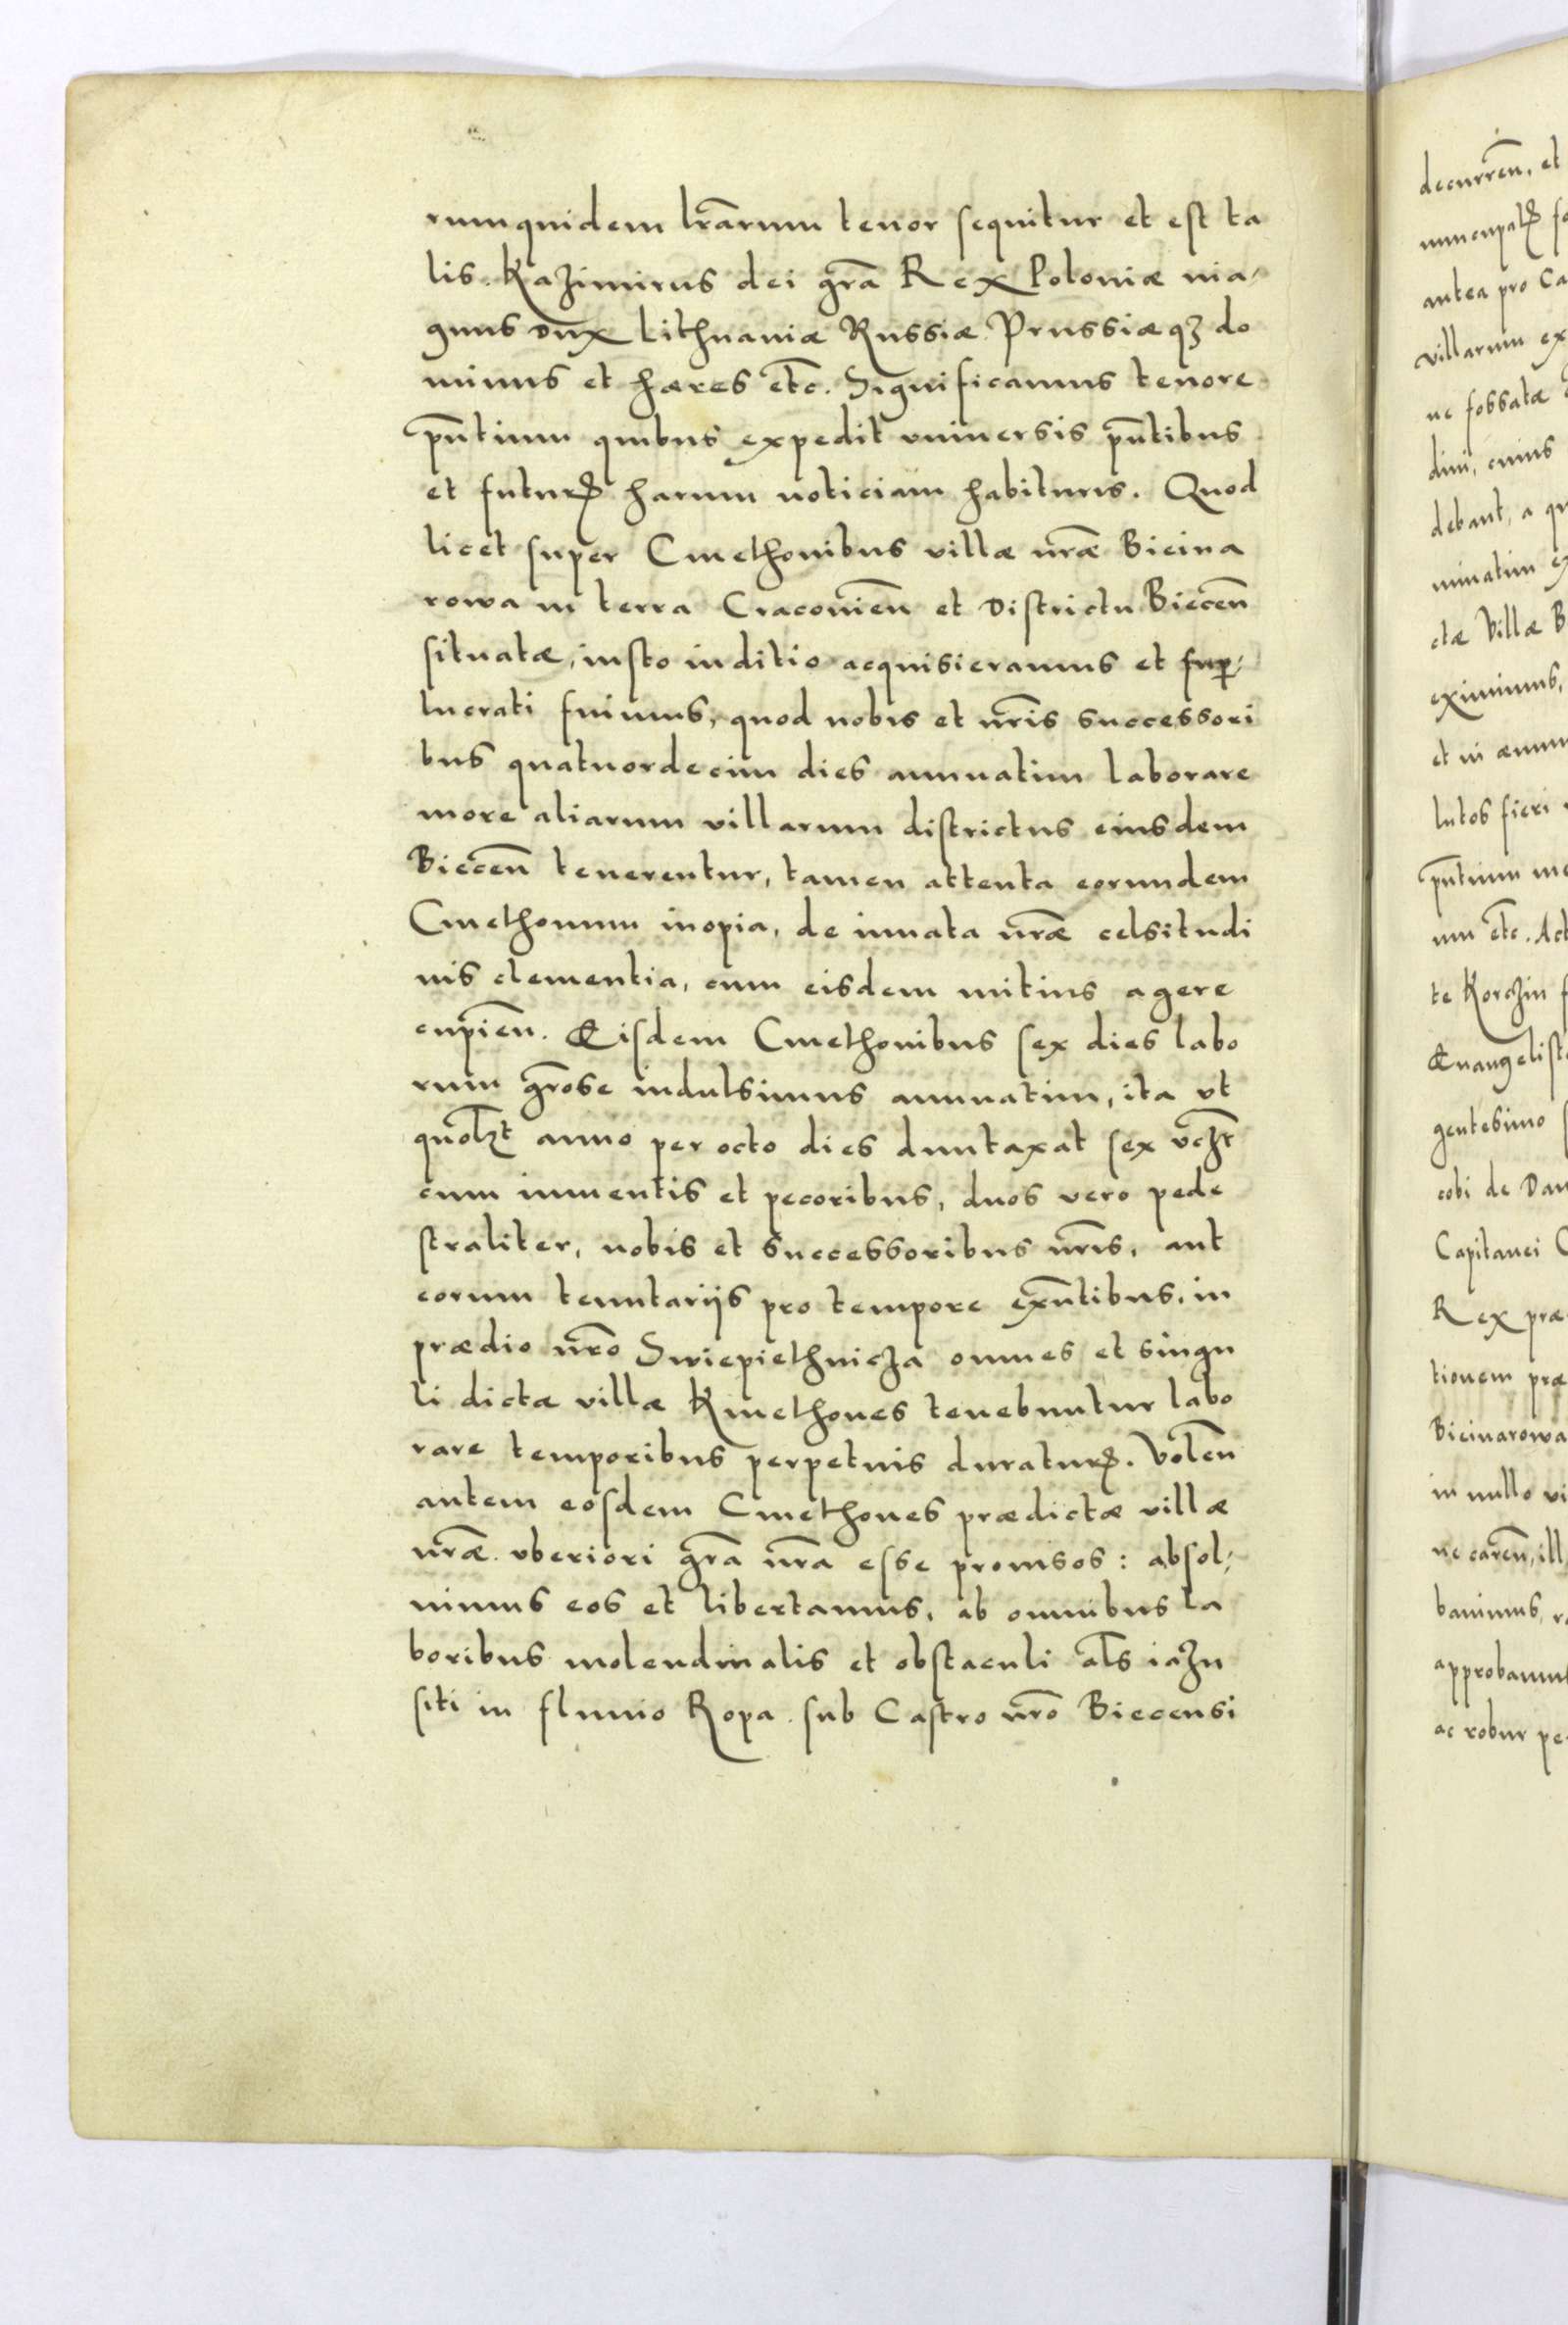 rumquidem lr̃arum tenor sequitur et est ta
lis. Kazimirus dei gr̃a Rex Poloniæ ma-
gnus dux Lithuaniæ Russiæ Prussiæqꝫ do
minus et hæres etc̃. Significamus tenore
pñtium quibus expedit vniuersis pñtibus
et futurꝭ harum noticiam habituris. Quod
licet super Cmethonibus villæ nr̃æ Bieina
rowa in terra Cracouien̄ et Districtu Biecen̄
situatæ, iusto iuditio acquisieramus et sup̱-
lucrati fuimus, quod nobis et nr̃is successori
bus quatuordecim dies annuatim laborare
more aliarum villarum districtus eiusdem
Biecen̄ tenerentur, tamen attenta eorundem
Cmethonum inopia, de innata nr̃æ celsitudi
nis clementia, cum eisdem mitius agere
cupien̄. Eisdem Cmethonibus sex dies labo
rum gr̃ose indulsimus annuatim, ita vt
quol̃zt anno per octo dies duntaxat sex vc̃zt
cum iumentis et pecoribus, duos vero pede
straliter, nobis et successoribus nr̃is, aut
eorum tenutariis pro tempore exñtibus, in
prædio nr̃o Swiepiethnicza omnes et singu
li dictæ villæ Kmethones tenebuntur labo
rare temporibus perpetuis duraturꝭ. Volen̄
autem eosdem Cmethones prædictæ villæ
nr̃æ vberiori gr̃a nr̃a esse prouisos: absol-
uimus eos et libertamus, ab omnibus la
boribus molendinalis et obstaculi al̃s iazu
siti in fluuio Ropa sub Castro nr̃o Biecensi
decurren̄, et
nuncupatꝭ
antea pro
villarum
ne fossatæ
dini, cuius
debant, a
minatim
ctæ Villæ
eximimus,
et in æuum
lutos fieri
pñtium
um etc̃.
te Korczin
Euangelist
gentesimo
cobi de
Capitanei
Rex præ
tionem præ
Bieinarowa
in nullo
ne caren̄,
bauimus,
approbamus
ac robur